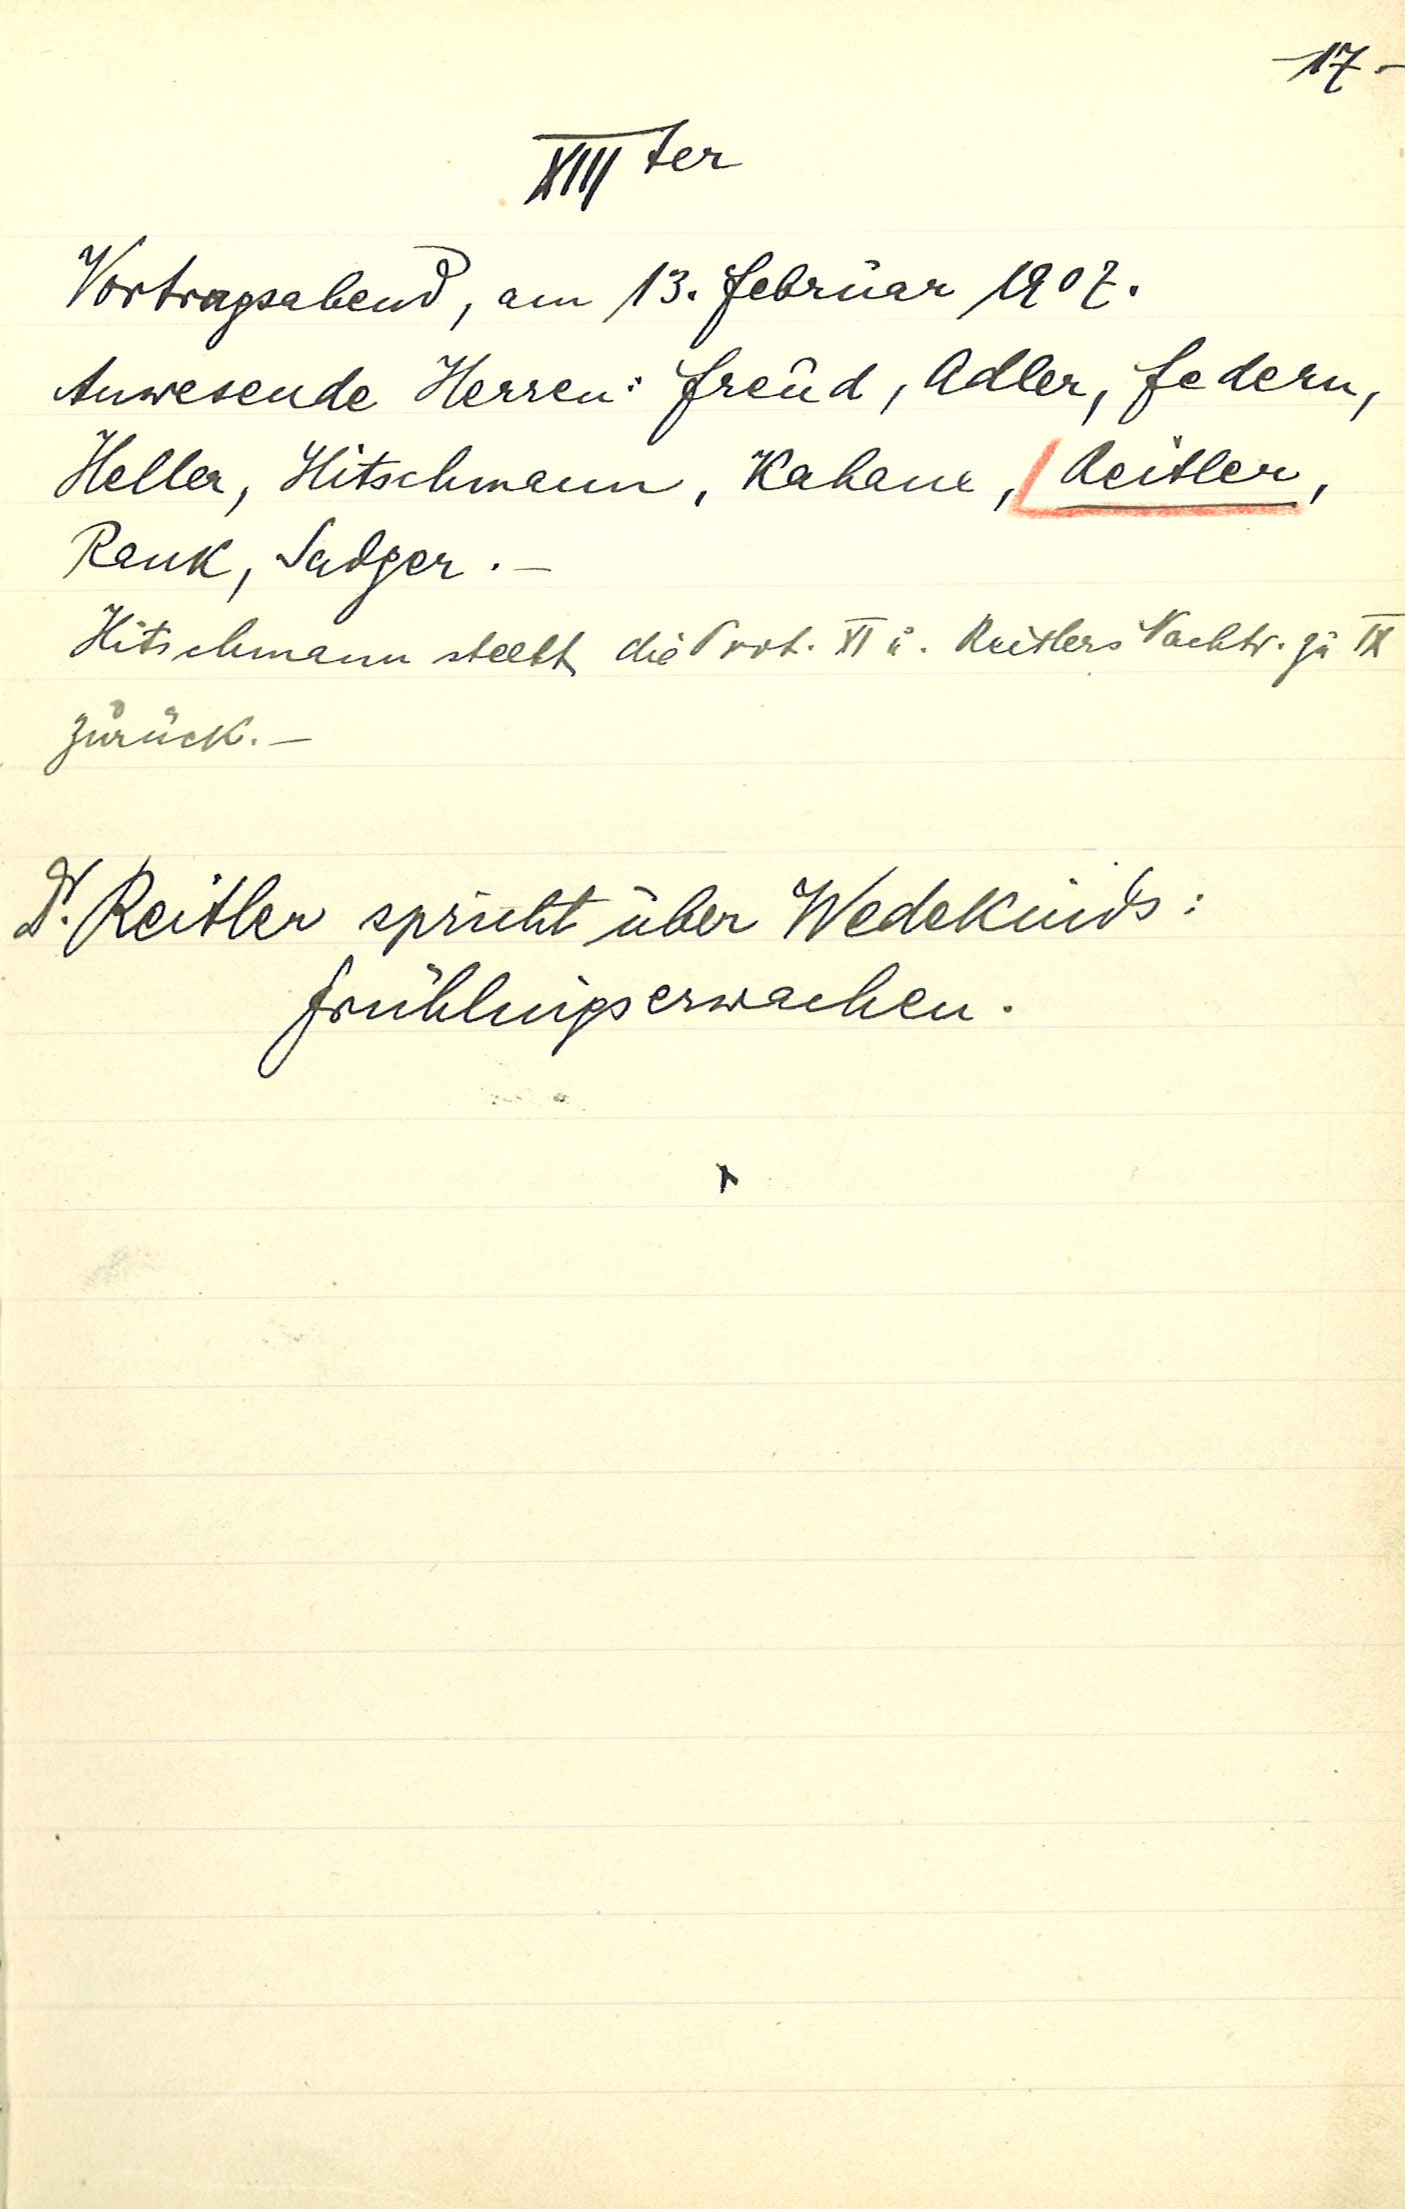 -17-
XIIIter
Vortragsabend, am 13. Februar 1907.
Anwesende Herren: Freud, Adler, Federn,
Heller, Hitschmann, Kahane, Reitler,
Rank, Sadger. –
Hitschmann stellt die Prot. XI u. Reitlers Nachtr. zu IX
zurück. –
Dr. Reitler spricht über Wedekinds:
Frühlingserwachen.